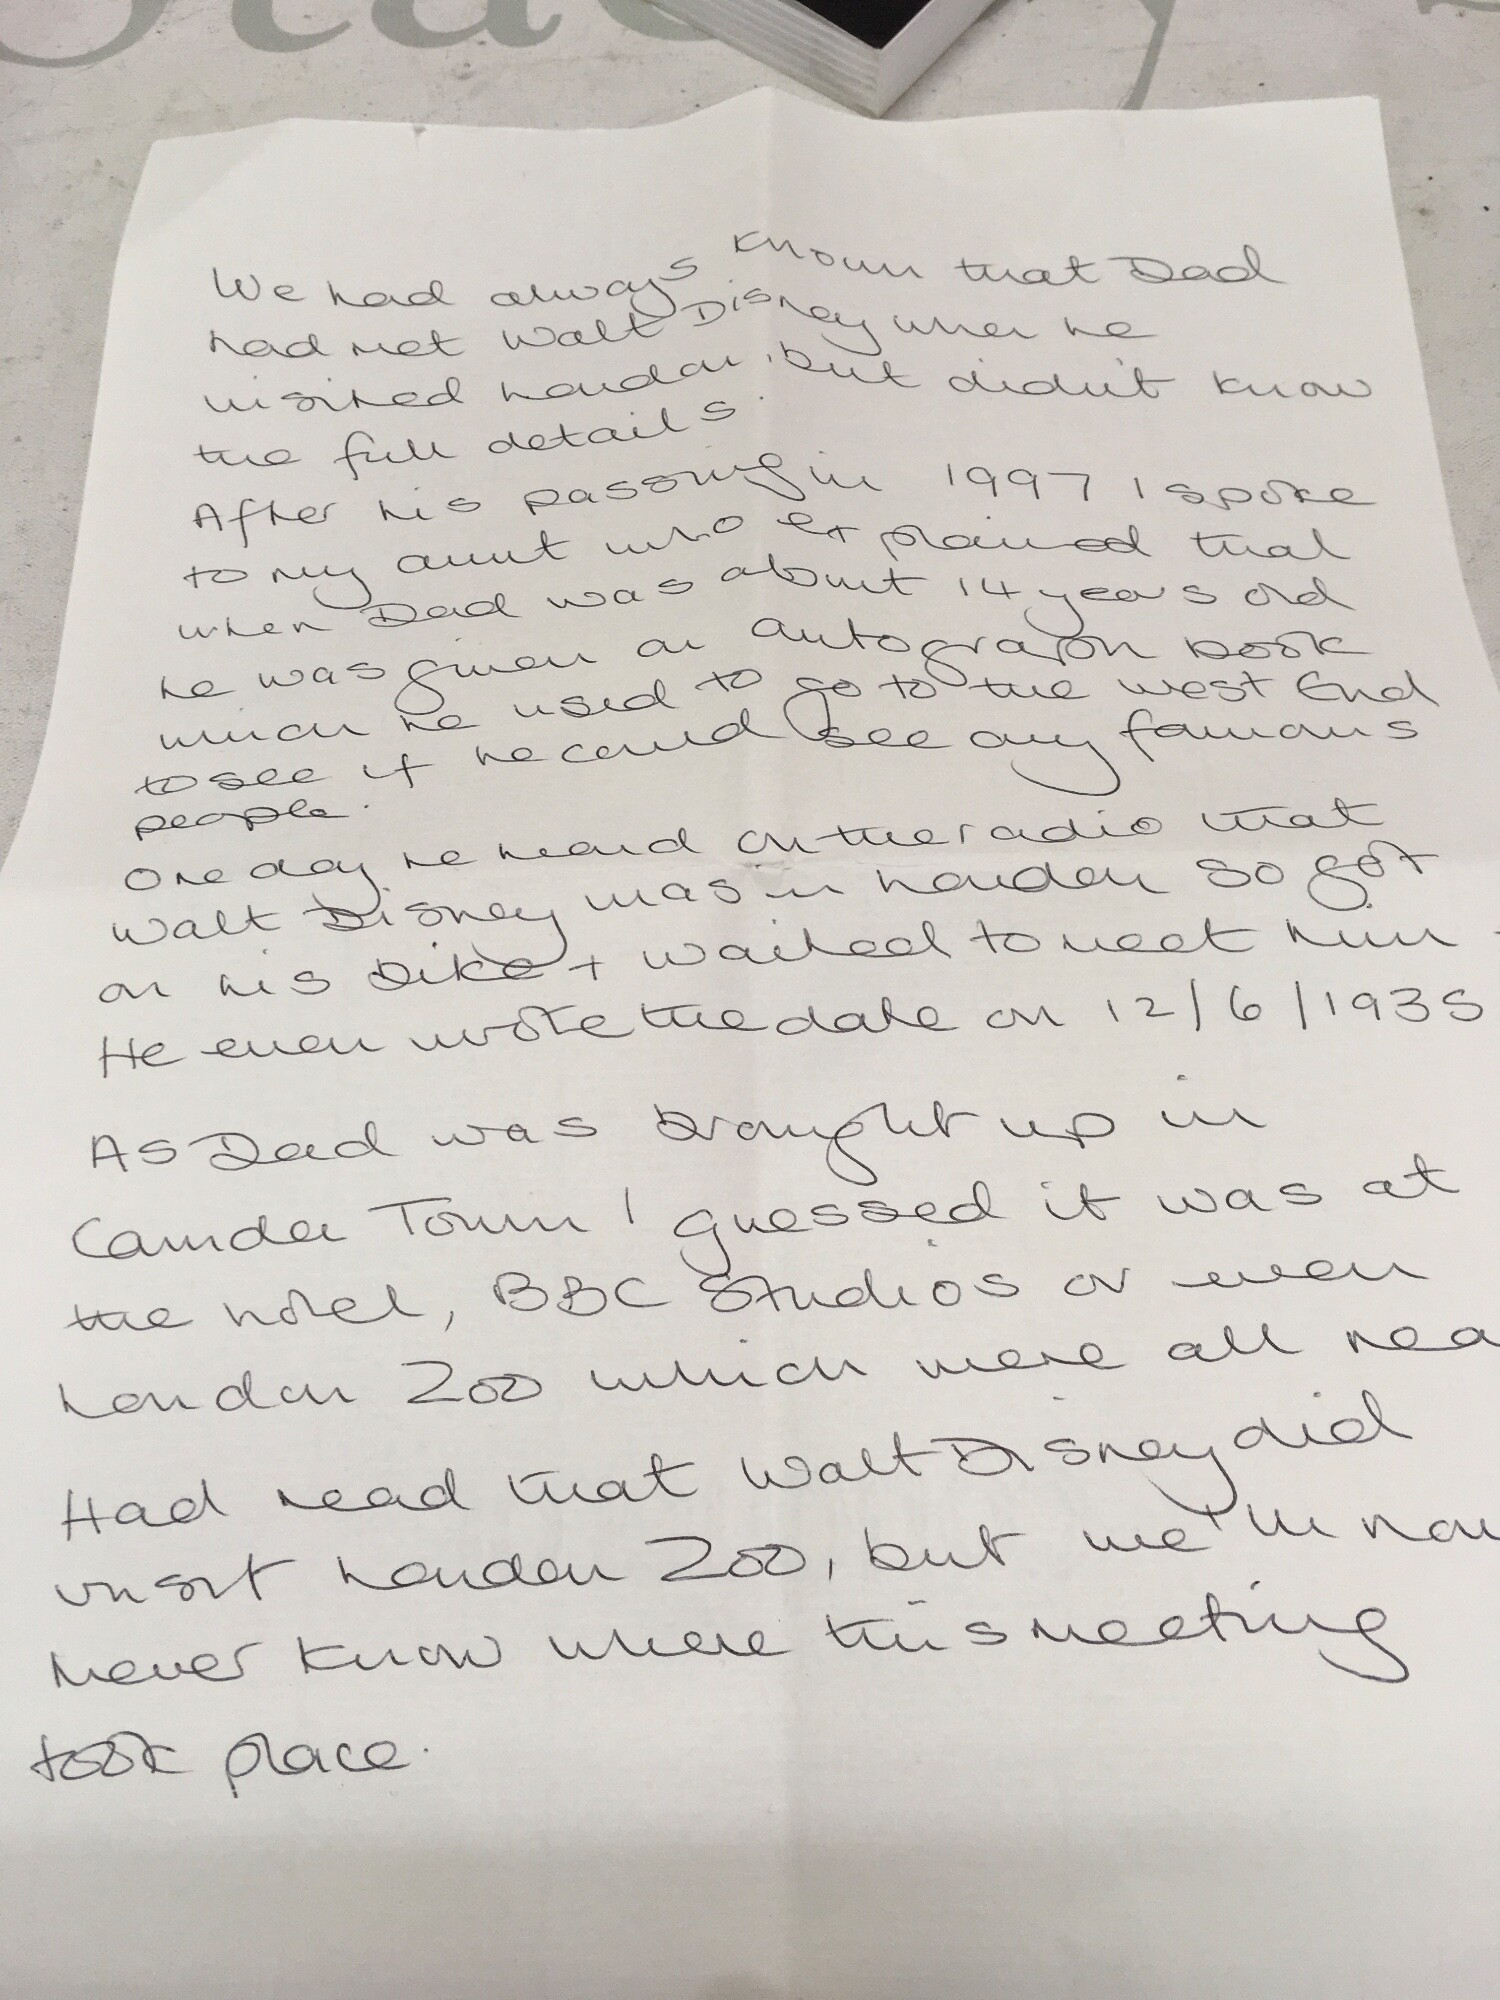 We had always known that Dad
had met Walt Disney when he
visited London, but didn't know
the full details.
After his passing in 1997 I spoke
to my aunt who explained that
when Dad was about 14 years old
he was given an autograph book
which he used to go to the West End
to see if he could see any famous
people.
One day he heard on the radio that
Walt Disney was in London so got
on his bike + waited to meet him
He even wrote the date on 12/6/1935
As Dad was brought up in
Camden Town I guessed it was at
the hotel, BBC Studios or even
London Zoo which were all nea
Had read that Walt Disney did
visit London Zoo, but we'll now
never know where this meeting
took place.